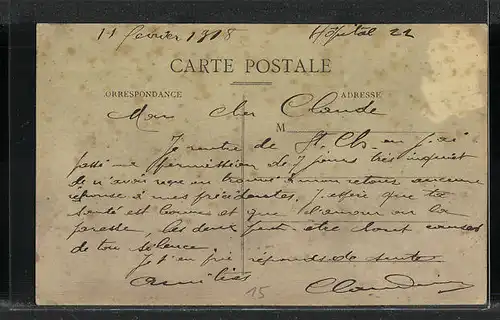 11 février 1918 Hôpital 22
CARTE POSTALE
ORRESPONDANCE ADRESSE
Mon cher Claude
M
Je rentre de St. Ch. où j'ai
passé une permission de 7 jours très inquiet
de n'avoir reçu en trouvé à mon retour aucune
réponse à mes précédentes. J'espère que ta
santé est bonne et que l'amour ou la
paresse, les deux peut-être sont causes
de ton silence.
Je t'en prie réponds de suite
Amitiés
15